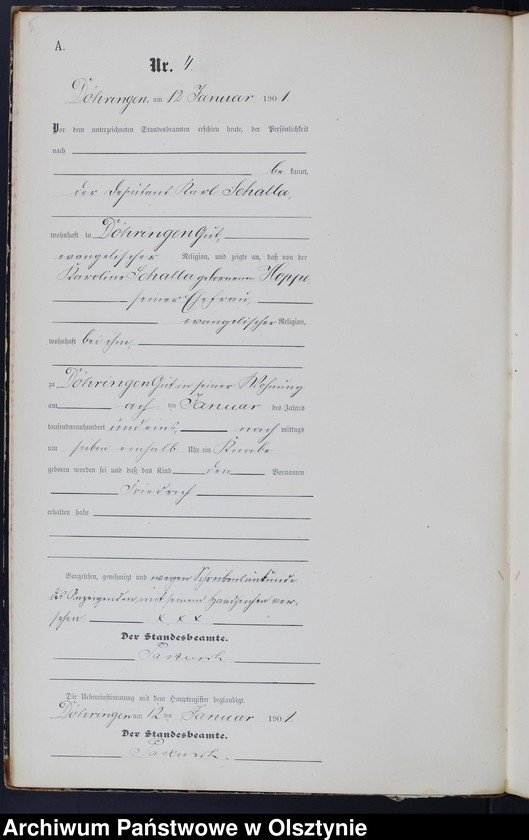 5
A.
Nr. 4.
Döhringen, am 12 Januar 1901.
Vor dem unterzeichneten Standesbeamten erschien heute, der Persönlichkeit
nach
be kannt,
der Deputant Karl Schalla,
wohnhaft in Döhringen Gut,
evangelischer Religion, und zeigte an, daß von der
Karoline Schalla geborenen Hoppe,
seiner Ehefrau,
evangelischer Religion,
wohnhaft bei ihm,
zu Döhringen Gut in seiner Wohnung
am ten Januar des Jahres
tausendneunhundert und eins, nach mittags
um sieben einhalb Uhr ein Knabe
geboren worden sei und daß das Kind den Vornamen
Friedrich
erhalten habe
Vorgelesen, genehmigt und wegen Schreibensunkunde
des Anzeigenden mit seinem Handzeichen ver-
sehen x x x
Der Standesbeamte.
Die Uebereinstimmung mit dem Hauptregister beglaubigt.
Döhringen am 12 ten Januar 1901.
Der Standesbeamte.
Archiwum Państwowe w Olsztynie